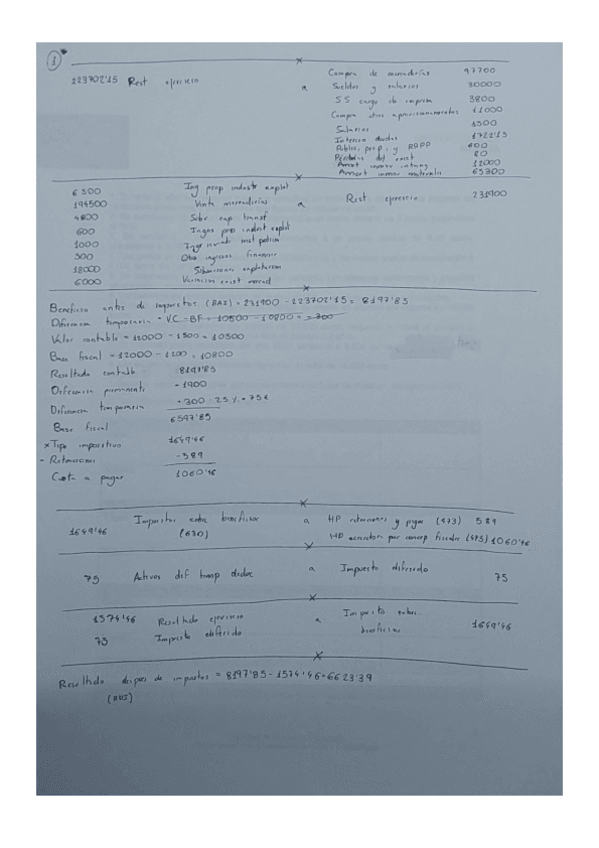 1
Compra de mercaderías 97700
223702'15 Rest ejercicio a Sueldos y salarios 30000
SS cargo de empresa 3800
Compra otros aprovisionamientos 11000
Salarios 1500
Intereses deudas 1722'15
Public, prop, y RRPP 600
Pérdidas del exist 80
Amort inmov intang 12000
Amort inmov materiales 65300
6300 Ing prop industr explot
194500 Venta mercaderías a Rest ejercicio 231900
4800 Subv cap transf
600 Ingres prop indust explot
1000
300 Otro ingresos financier
18000 Subvenciones explotacion
6000 Variacion exist mercad
Beneficio antes de impuestos (BAI) = 231900 - 223702'15 = 8197'85
Diferencia temporaria = V.C - BF = 10500 - 10800 = -300
Valor contable = 12000 - 1500 = 10500
Base fiscal = 12000 - 1200 = 10800
Resultado contable 8197'85
Diferencia permanente - 1900
Diferencia temporaria + 300 · 25 % = 75 €
Base fiscal 6597'85
x Tipo impositivo 1649'46
- Retenciones - 589
Cuota a pagar 1060'46
1649'46 Impuestos sobre beneficios (630) a HP retenciones y pagos (473) 589
HP acreedora por concep fiscales (475) 1060'46
75 Activos dif temp deduc a Impuesto diferido 75
1574'46 Resultado ejercicio a Impuesto sobre beneficios 1649'46
75 Impuesto diferido
Resultado despues de impuestos = 8197'85 - 1574'46 = 6623'39